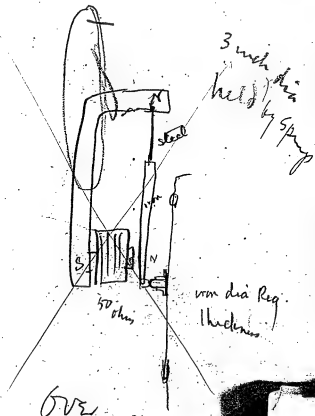 3 inch dia
held
by Springs
N
steel
iron
S
N
50 ohms
iron dia Reg.
thickness
OVER